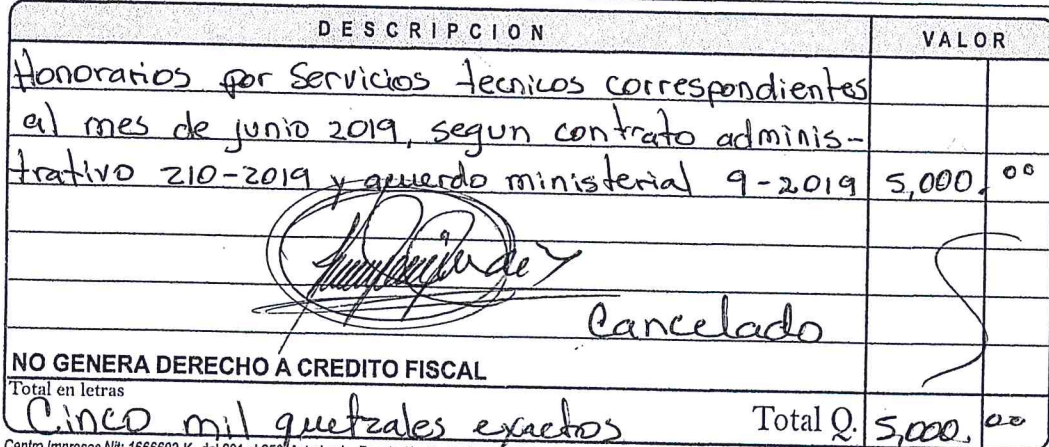 DESCRIPCION VALOR
Honorarios por Servicios tecnicos correspondientes
al mes de junio 2019, segun contrato adminis-
trativo 210-2019 y acuerdo ministerial 9-2019 5,000.00
Cancelado
NO GENERA DERECHO A CREDITO FISCAL
Total en letras
Cinco mil quetzales exactos Total Q. 5,000.00